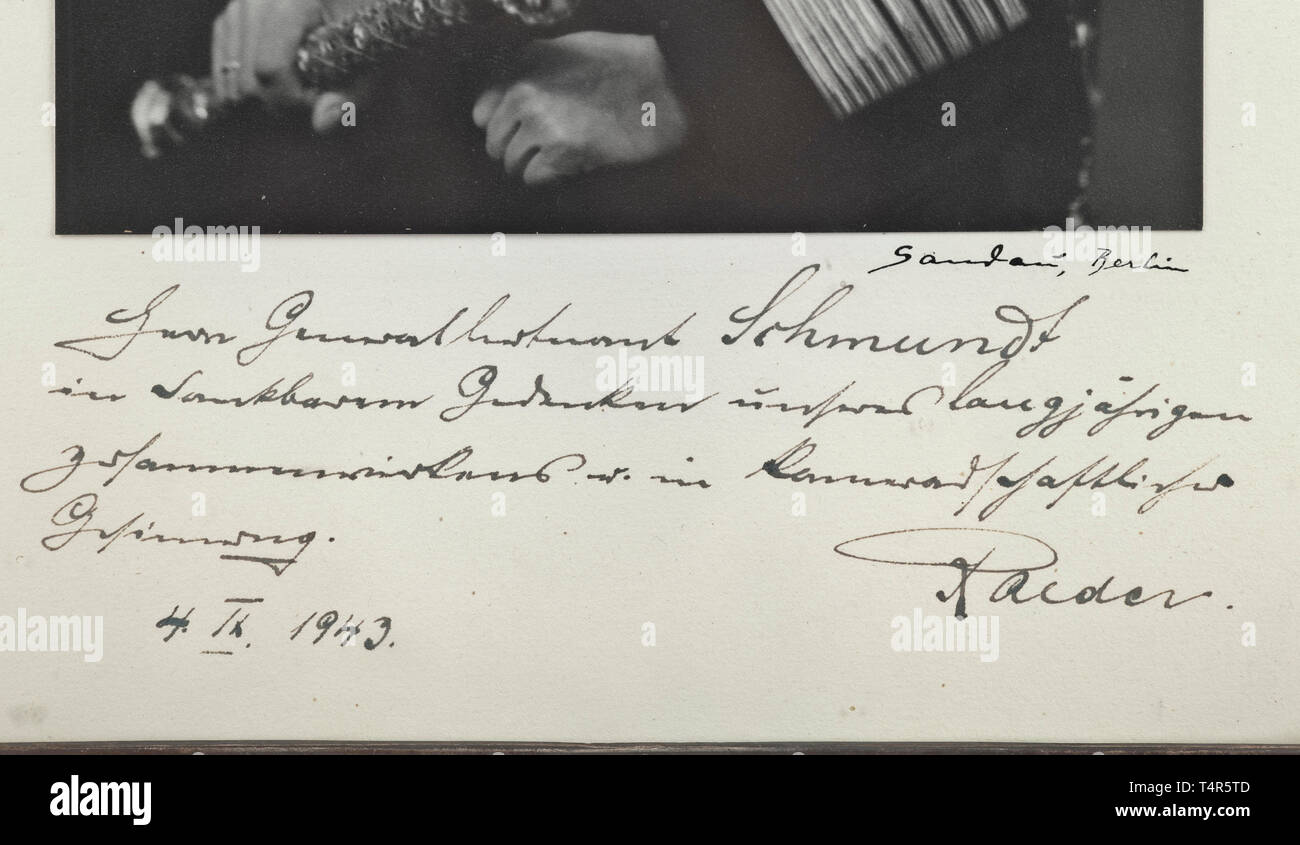 Sandau, Berlin
Herrn Generalleutnant Schmundt
in dankbarem Gedenken unseres langjährigen
Zusammenwirkens u. in kameradschaftlicher
Gesinnung.
Raeder.
4. IX. 1943.
a alamy
alamy
Image ID: T4R5TD
www.alamy.com